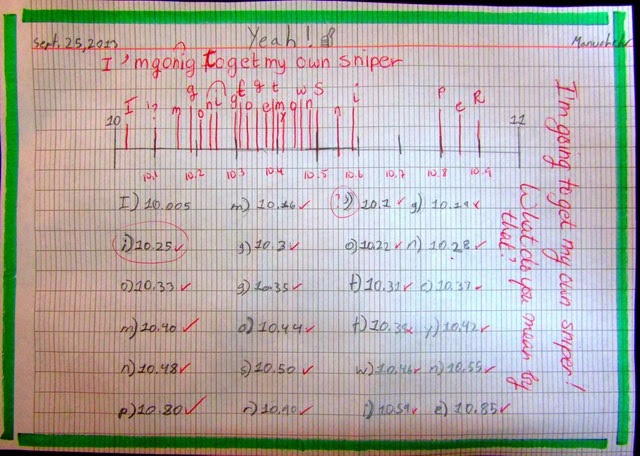 Sept. 25, 2013 Yeah!
I'm gonig to get my own sniper
I ? m g o n i g t o g e t m y o w n S n i P e R
10 11
10.1 10.2 10.3 10.4 10.5 10.6 10.7 10.8 10.9
I) 10.005 m) 10.16 ?) 10.1 g) 10.19
i) 10.25 g) 10.3 o) 10.22 n) 10.28
o) 10.33 g) 10.35 t) 10.31 e) 10.37
m) 10.40 o) 10.44 t) 10.38 y) 10.42
n) 10.48 s) 10.50 w) 10.46 n) 10.55
p) 10.80 r) 10.90 i) 10.59 e) 10.85
I'm going to get my own sniper!
What do you mean by
that?